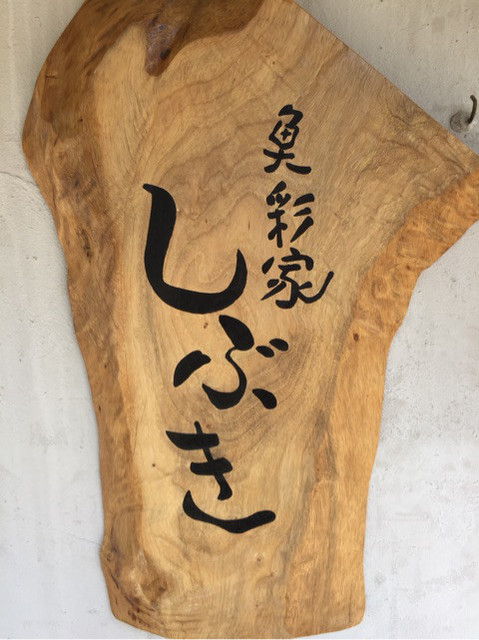 魚彩家
しぶき